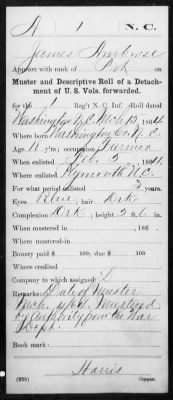 A 1 N.C.
James Ambrose
Appears with rank of Pvt on
Muster and Descriptive Roll of a Detach-
ment of U. S. Vols. forwarded.
for the 1 Reg't N. C. Inf. Roll dated
Washington N.C. Mch 13, 1864
Where born Washington Co. N.C.
Age 18 y'rs; occupation Farmer
When enlisted Feb. 5, 1864.
Where enlisted Plymouth N.C.
For what period enlisted 3 years.
Eyes Blue; hair Drk
Complexion Drk; height 5 ft. 6 in.
When mustered in , 186 .
Where mustered-in
Bounty paid $ 100; due $ 100
Where credited
Company to which assigned L
Remarks: Date of muster
Mch. 4/64. Mustered
by authority from the War
Dept.
Book mark:
Harris
(339) Copyist.